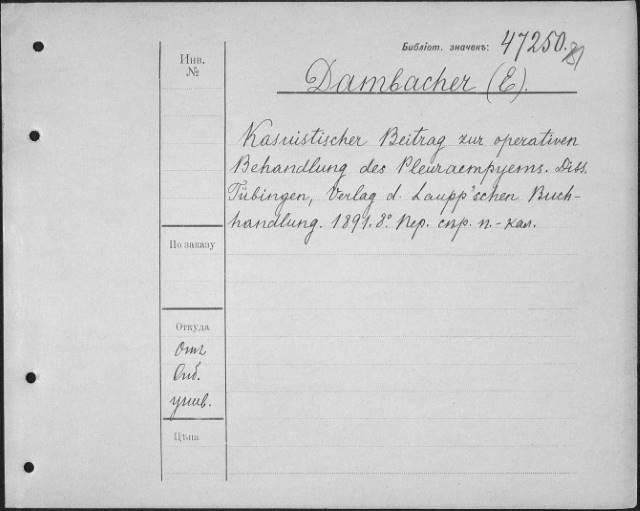 Библіот. значекъ: 47250.
Инв.
№
Dambacher (E).
Kasuistischer Beitrag zur operativen
Behandlung des Pleuraempyems. Diss.
Tübingen, Verlag d. Laupp'schen Buch-
handlung. 1891. 8° Пер. спр. п.-кал.
По заказу
Откуда
Отъ
Сиб.
унив.
Цѣна